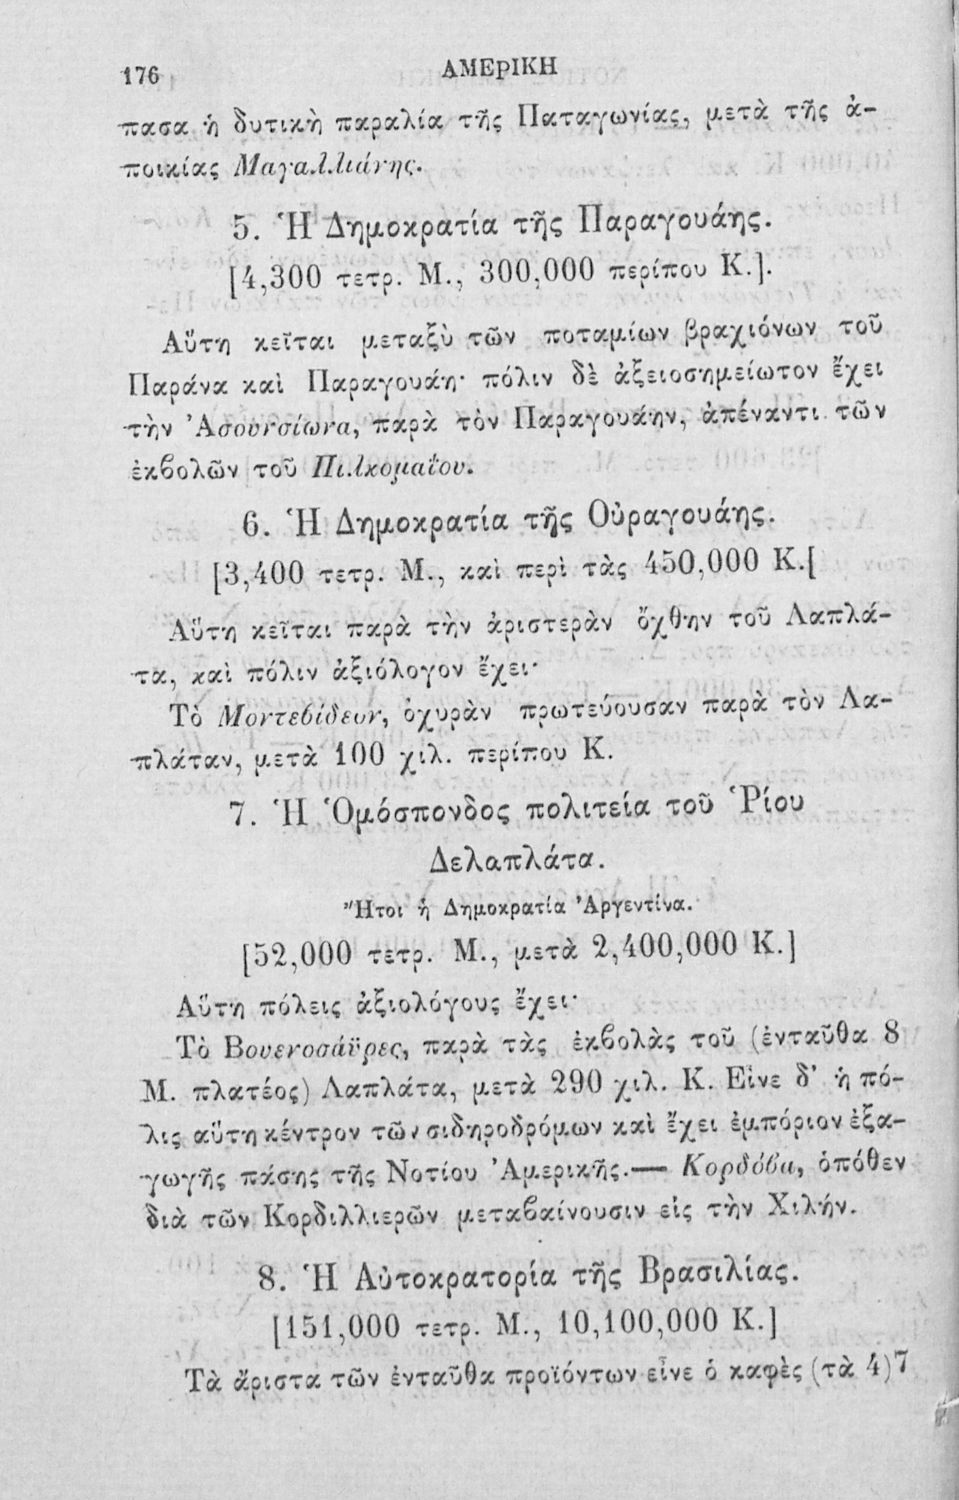 176 ΑΜΕΡΙΚΗ
πασα ἡ δυτικὴ παραλία τῆς Παταγωνίας, μετὰ τῆς ἀ-
ποικίας Μαγαλλιάνης.
5. Ἡ Δημοκρατία τῆς Παραγουάης.
[4,300 τετρ. Μ., 300,000 περίπου Κ.].
Αὕτη κεῖται μεταξὺ τῶν ποταμίων βραχιόνων τοῦ
Παράνα καὶ Παραγουάη· πόλιν δὲ ἀξειοσημείωτον ἔχει
τὴν Ἀσουνσίωνα, παρὰ τὸν Παραγουάην, ἀπέναντι τῶν
ἐκβολῶν τοῦ Πιλκομαΐου.
6. Ἡ Δημοκρατία τῆς Οὐραγουάης.
[3,400 τετρ. Μ., καὶ περὶ τὰς 450,000 Κ.[
Αὕτη κεῖται παρὰ τὴν ἀριστερὰν ὄχθην τοῦ Λαπλά-
τα, καὶ πόλιν ἀξιόλογον ἔχει·
Τὸ Μοντεβίδεων, ὀχυρὰν πρωτεύουσαν παρὰ τὸν Λα-
πλάταν, μετὰ 100 χιλ. περίπου Κ.
7. Ἡ Ὁμόσπονδος πολιτεία τοῦ Ῥίου
Δελαπλάτα.
Ἤτοι ἡ Δημοκρατία Ἀργεντίνα.
[52,000 τετρ. Μ., μετὰ 2,400,000 Κ.]
Αὕτη πόλεις ἀξιολόγους ἔχει·
Τὸ Βουενοσάϋρες, παρὰ τὰς ἐκβολὰς τοῦ (ἐνταῦθα 8
Μ. πλατέος) Λαπλάτα, μετὰ 290 χιλ. Κ. Εἶνε δ' ἡ πό-
λις αὕτη κέντρον τῶν σιδηροδρόμων καὶ ἔχει ἐμπόριον ἐξα-
γωγῆς πάσης τῆς Νοτίου Ἀμερικῆς.— Κορδόβα, ὁπόθεν
διὰ τῶν Κορδιλλιερῶν μεταβαίνουσιν εἰς τὴν Χιλήν.
8. Ἡ Αὐτοκρατορία τῆς Βρασιλίας.
[151,000 τετρ. Μ., 10,100,000 Κ.]
Τὰ ἄριστα τῶν ἐνταῦθα προϊόντων εἶνε ὁ καφὲς (τὰ 4)7